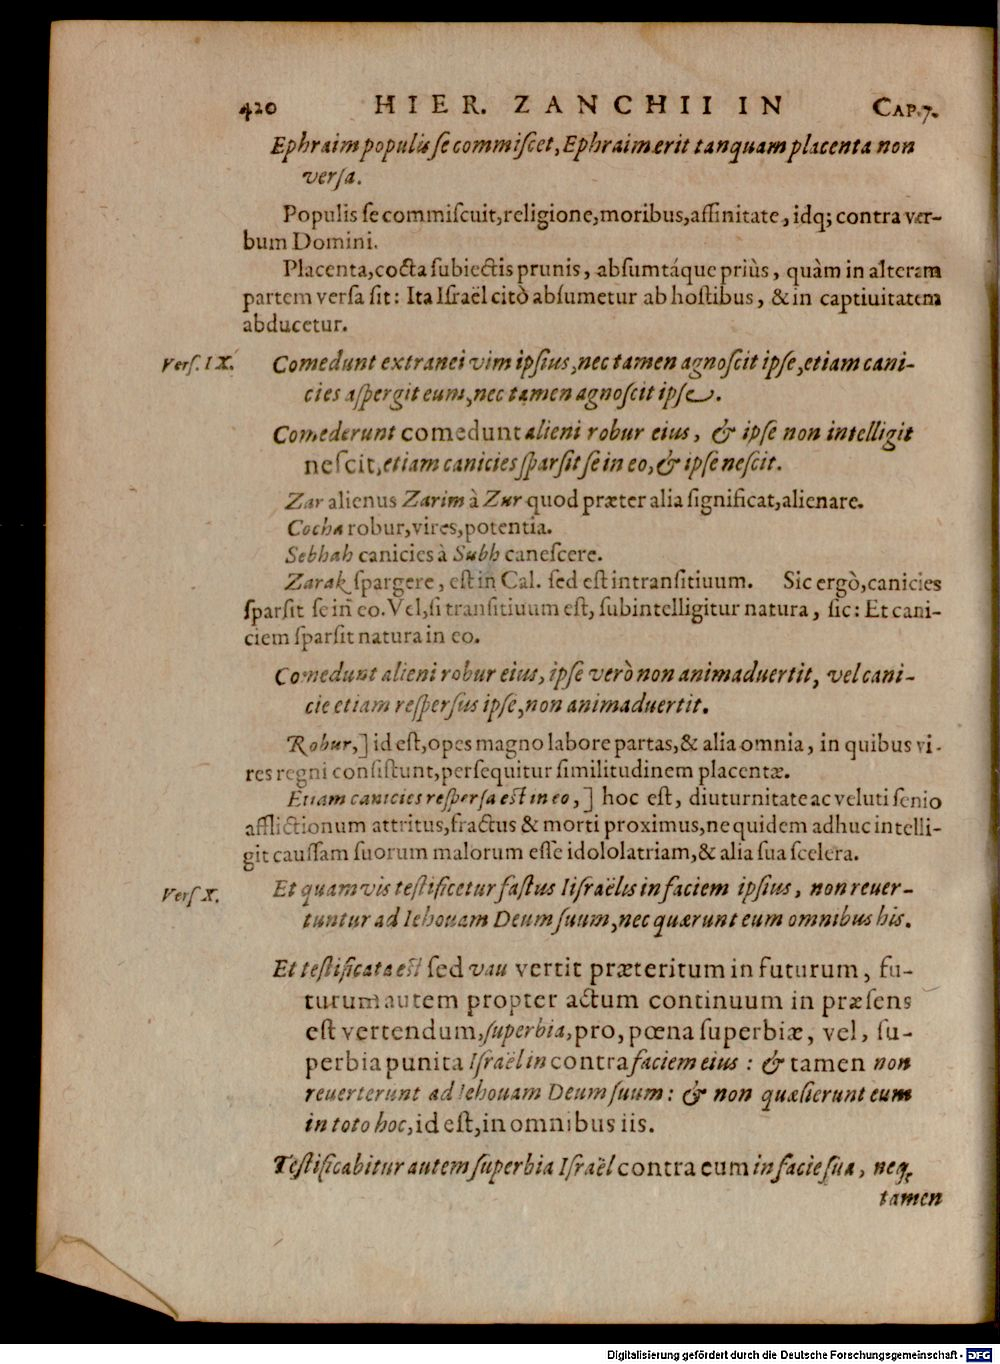 420 HIER. ZANCHII IN CAP.7.
Ephraim populis se commiscet, Ephraim erit tanquam placenta non
versa.
Populis se commiscuit, religione, moribus, affinitate, idq; contra ver-
bum Domini.
Placenta, cocta subiectis prunis, absumtáque priùs, quàm in alteram
partem versa sit: Ita Israël citò absumetur ab hostibus, & in captiuitatem
abducetur.
Vers. IX. Comedunt extranei vim ipsius, nec tamen agnoscit ipse, etiam cani-
cies aspergit eum, nec tamen agnoscit ipse.
Comederunt comedunt alieni robur eius, & ipse non intelligit
nescit, etiam canicies sparsit se in eo, & ipse nescit.
Zar alienus Zarim à Zur quod præter alia significat, alienare.
Cocha robur, vires, potentia.
Sebhah canicies à Subh canescere.
Zarak spargere, est in Cal. sed est intransitiuum. Sic ergò, canicies
sparsit se in eo. Vel, si transitiuum est, subintelligitur natura, sic: Et cani-
ciem sparsit natura in eo.
Comedunt alieni robur eius, ipse verò non animaduertit, vel cani-
cie etiam respersus ipse, non animaduertit.
Robur,] id est, opes magno labore partas, & alia omnia, in quibus vi-
res regni consistunt, persequitur similitudinem placentæ.
Etiam canicies respersa est in eo,] hoc est, diuturnitate ac veluti senio
afflictionum attritus, fractus & morti proximus, ne quidem adhuc intelli-
git caussam suorum malorum esse idololatriam, & alia sua scelera.
Vers X. Et quamvis testificetur fastus Iisraëlis in faciem ipsius, non reuer-
tuntur ad Iehouam Deum suum, nec quærunt eum omnibus his.
Et testificata est sed vau vertit præteritum in futurum, fu-
turum autem propter actum continuum in præsens
est vertendum, superbia, pro, pœna superbiæ, vel, su-
perbia punita Israël in contra faciem eius: & tamen non
reuerterunt ad Iehouam Deum suum: & non quæsierunt eum
in toto hoc, id est, in omnibus iis.
Testificabitur autem superbia Israël contra eum in facie sua, neq;
tamen
Digitalisierung gefördert durch die Deutsche Forschungsgemeinschaft - DFG